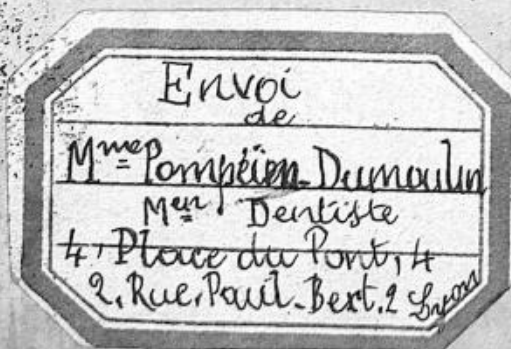 Envoi
de
Mme Pompéien-Dumoulin
Men Dentiste
4, Place du Pont, 4
2, Rue, Paul-Bert, 2 Lyon